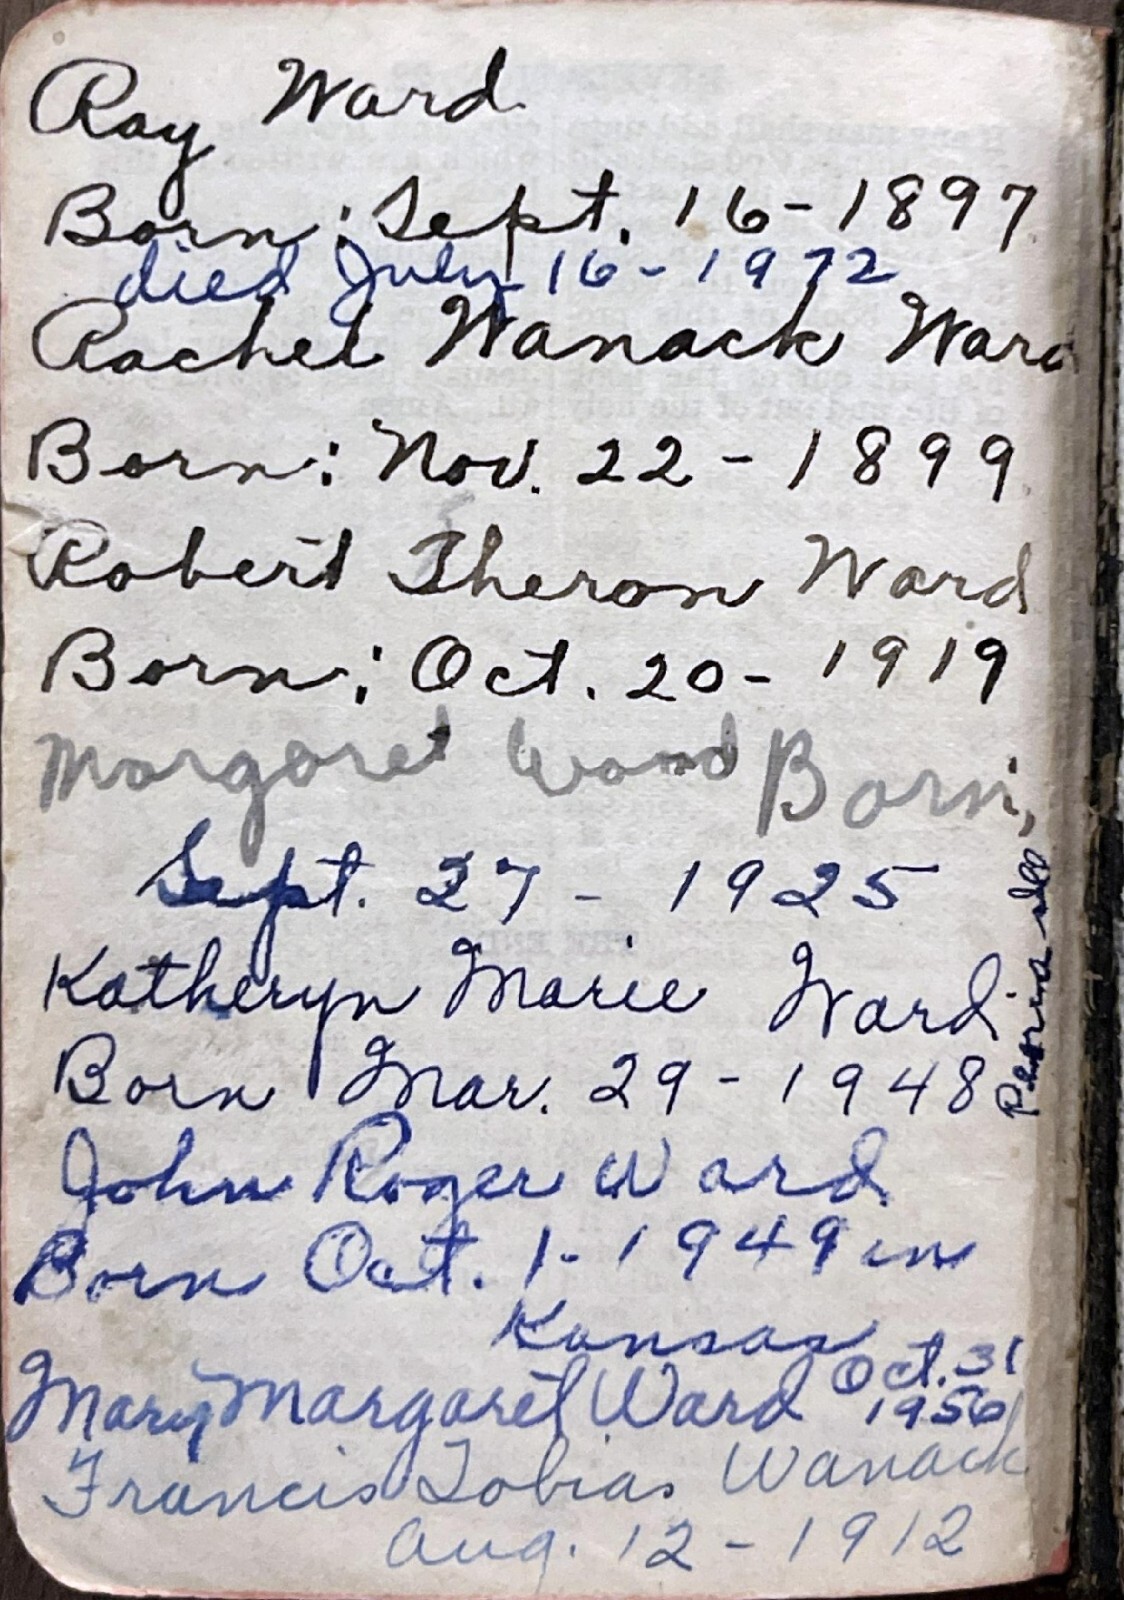 Ray Ward
Born: Sept. 16-1897
died July 16-1972
Rachel Wanack Ward
Born: Nov. 22-1899
Robert Theron Ward
Born: Oct. 20-1919
Margaret Ward Born,
Sept. 27-1925
Katheryn Marie Ward
Born Mar. 29-1948
Peoria Ill
John Roger Ward
Born Oct. 1-1949 in
Kansas
Mary Margaret Ward Oct. 31
1956
Francis Tobias Wanack
Aug. 12-1912